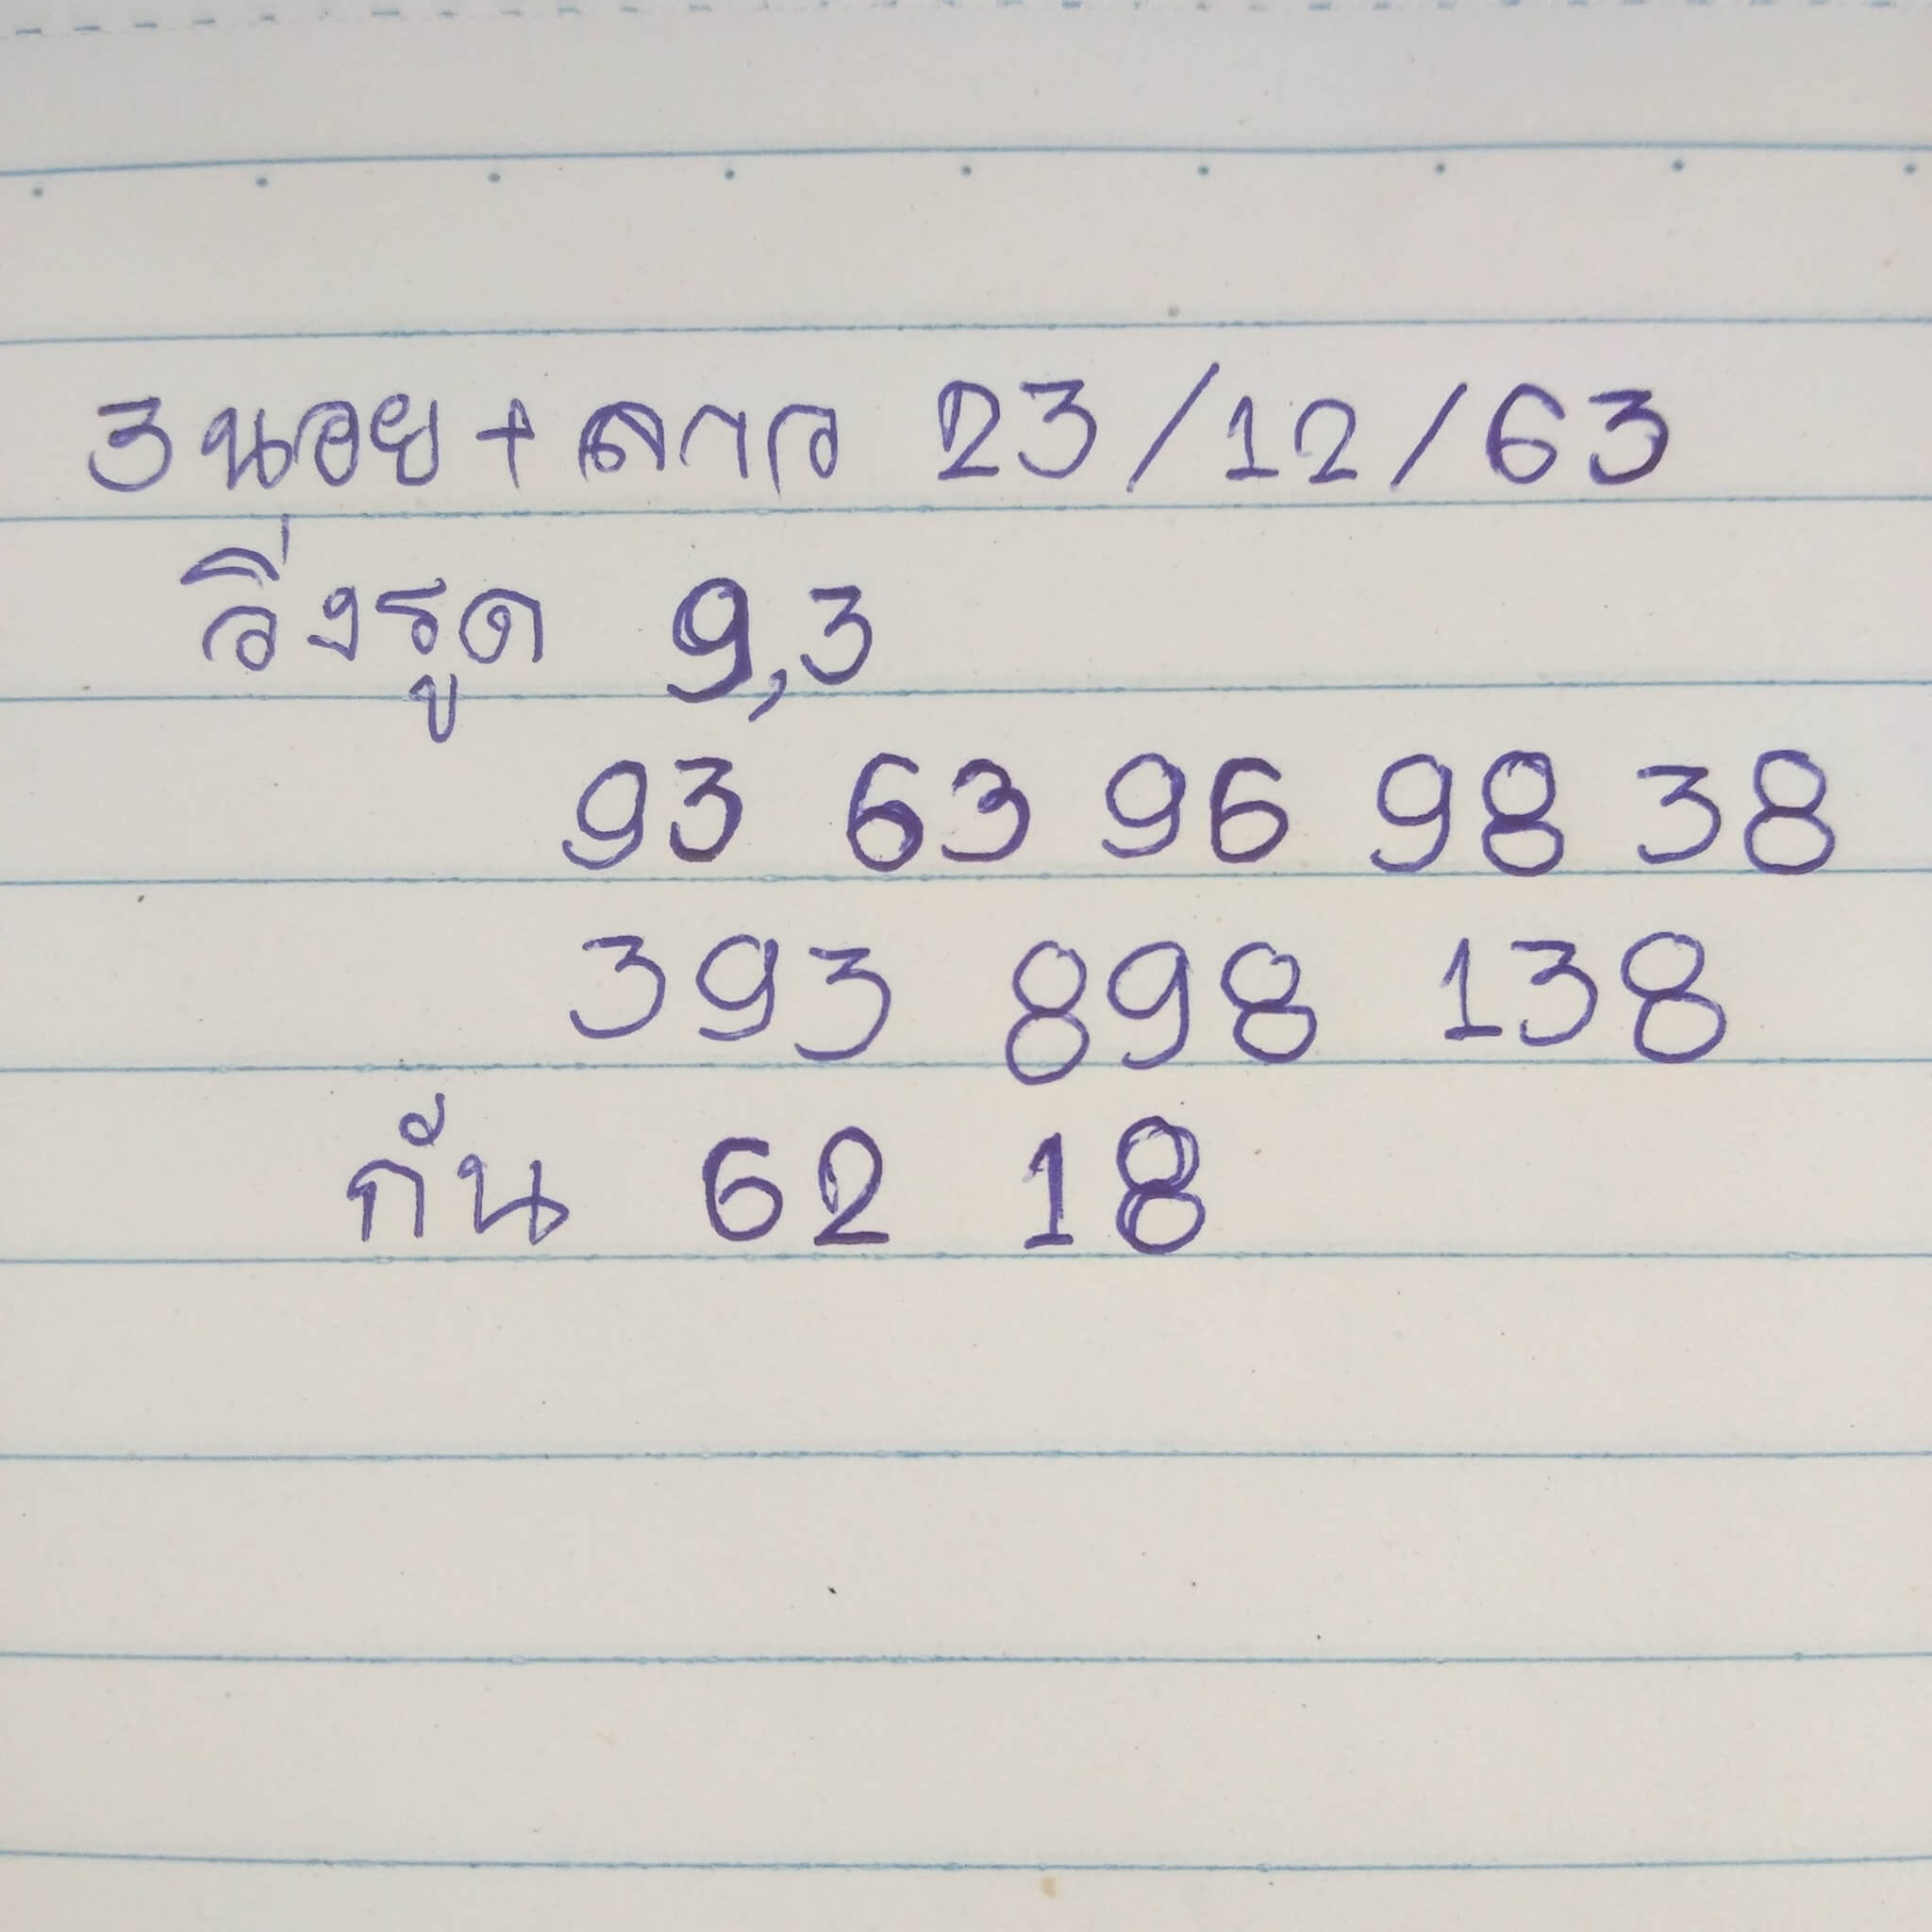 3นอย+ลาว 23/12/63
วิ่งรูด 9,3
93 63 96 98 38
393 898 138
กัน 62 18